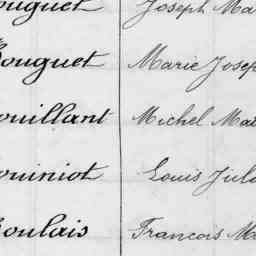 ouguet Joseph Ma
ouguet Marie Josep
ouillant Michel Mat
ouiniot Louis Jule
oulais Francois M